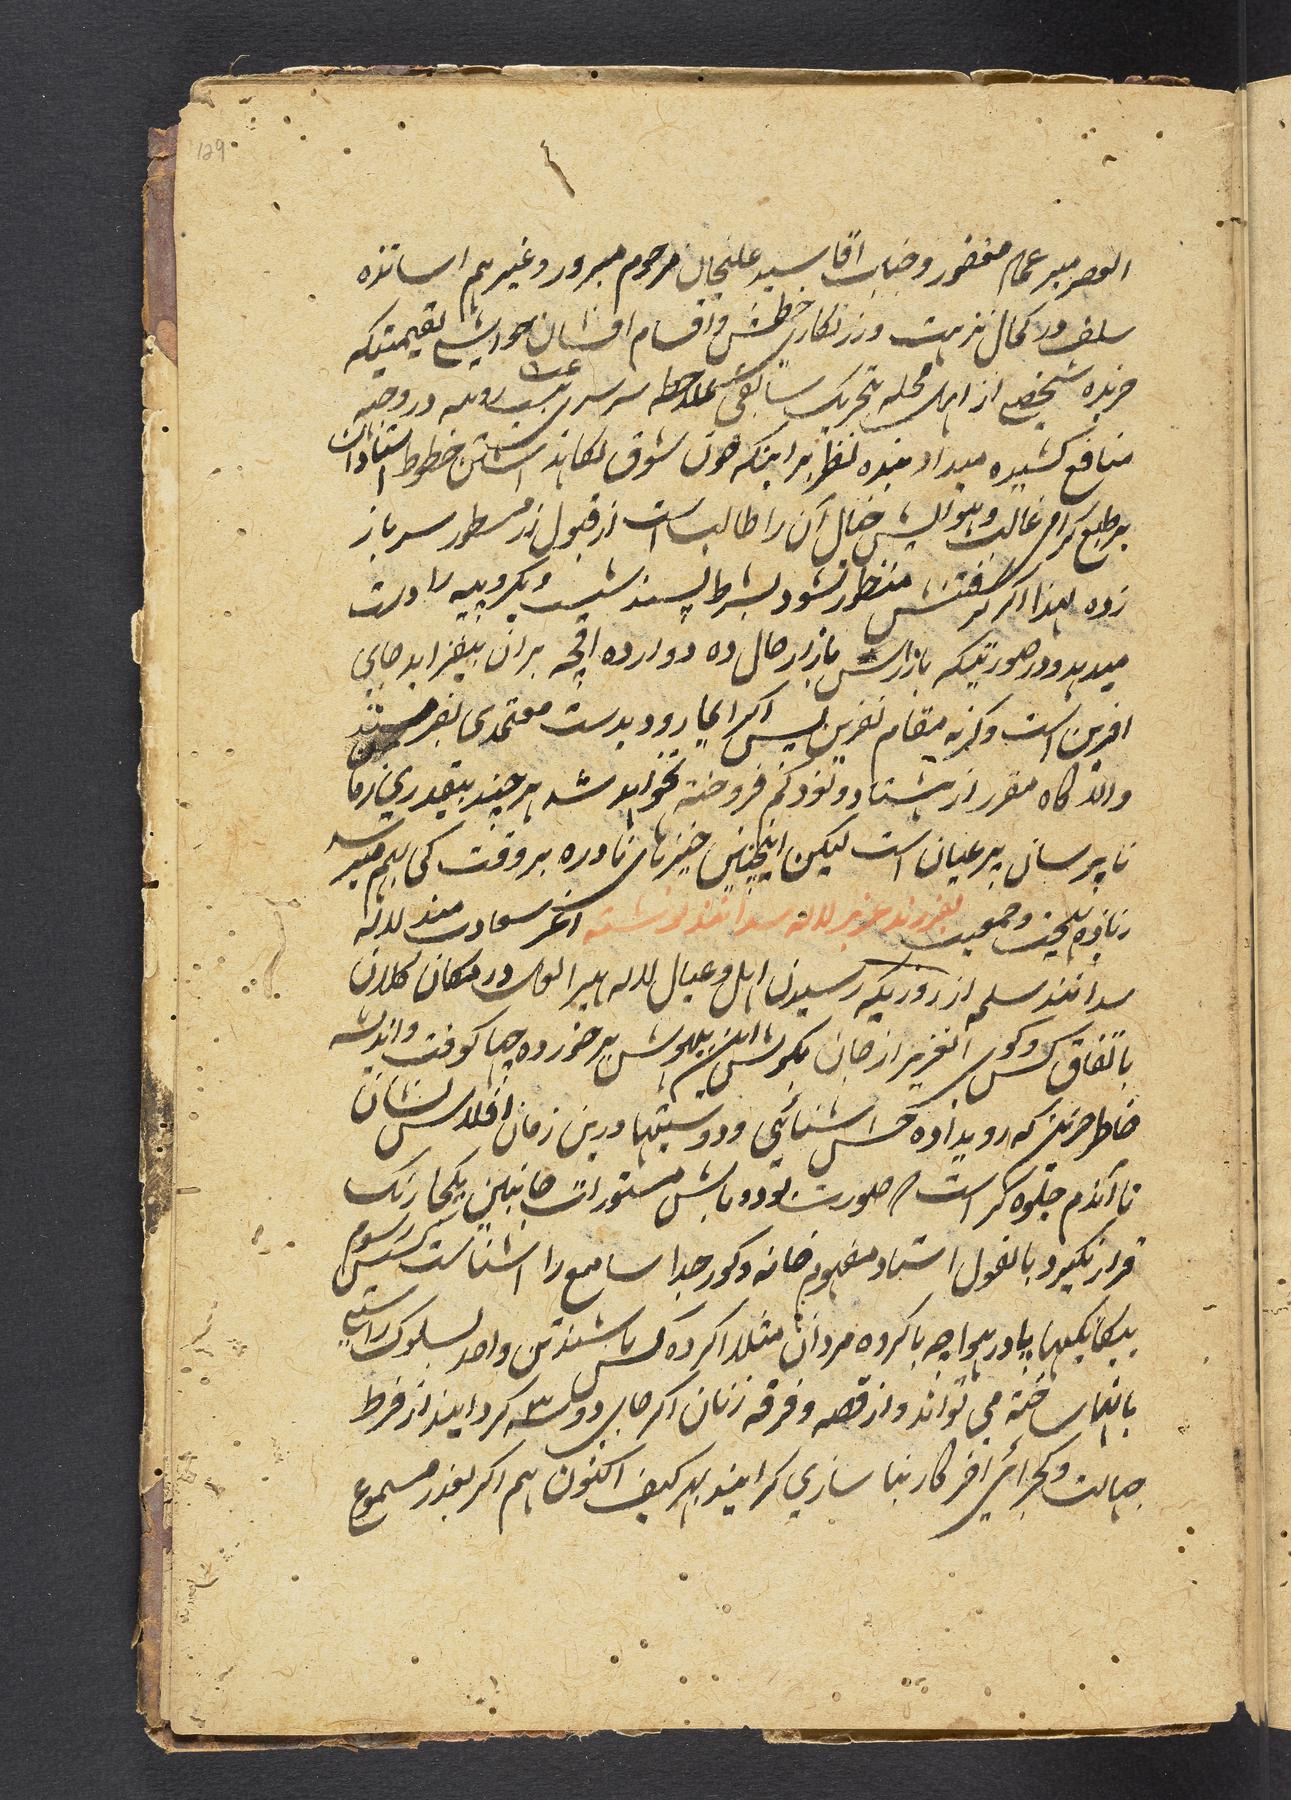 129
العصر میر عماد مغفور و جناب آقا سید علیخان مرحوم مبرور و غیرهم اساتذه
سلف در کمال نزهت و زرنکاری خطش و اقسام افشان حواشی بقیمتیکه
خریده شخصی از اهل محله بتحریک سابقی بملاحظه سرسری بیست روپیه در وجه
منافع کشیده میداد بنده نظر بر اینکه چون شوق نکاهداشتن خطوط استادان
بر طبع کرامی غالب و بتوالیش خیال آن را طالب است از قبول زر مسطور سر باز
زده لهذا اکر کرفتنش منظور شود بشرط پسند بیست و یکروپیه را درست
میدهد و در صورتیکه بازارش بازار حال ده دوازده اقچه بران بیفزاید جای
افرین است وکرنه مقام نفرین پس اکر ایما رود بدست معتمدی بفرستند
والا کاه مقرر از هشتاد و نود کم فروخته نخواهد شد هر چند بیقدری زمان
ناپرسان بر عیان است لیکن اینچنین چیزهای نادره بر وقت کی بهم میرسد
زیاده بهجت و جمعیت بفرزند عزیز لاله سدانند نوشته اغر سعادتمند لاله
سدانند سلمه از روزیکه رسیدن اهل و عیال لاله هیرالعل در مکان کلان
باتفاق کس و کوی آنعزیز از جان بکوش این بیهوش بر خورده چها کوفت و اندیشه
خاطر حزین که رویداده کس اشنائی و دوستیها درین زمان افلاس نشان
تا آندم جلوه کر است که صورت تود و باش مستورات جانبین یکجا رنک
قرار نکیرد بالقول استاد مفهوم خانه و کور جدا سامع را اشناست پس رسوم
بیکانکیها پا در هوا چه باکروه مردان مثلا اکر ده کس باشند تن واحد بسلوک راستی
بانها ساخته می تواند و از قصه و فرقه زنان اکر جای دو سه کرد ایند از فرط
جهالت و کجرائی اخر کار بنا سازی کرایند بهر کیف اکنون هم اکر بعذر مسموع